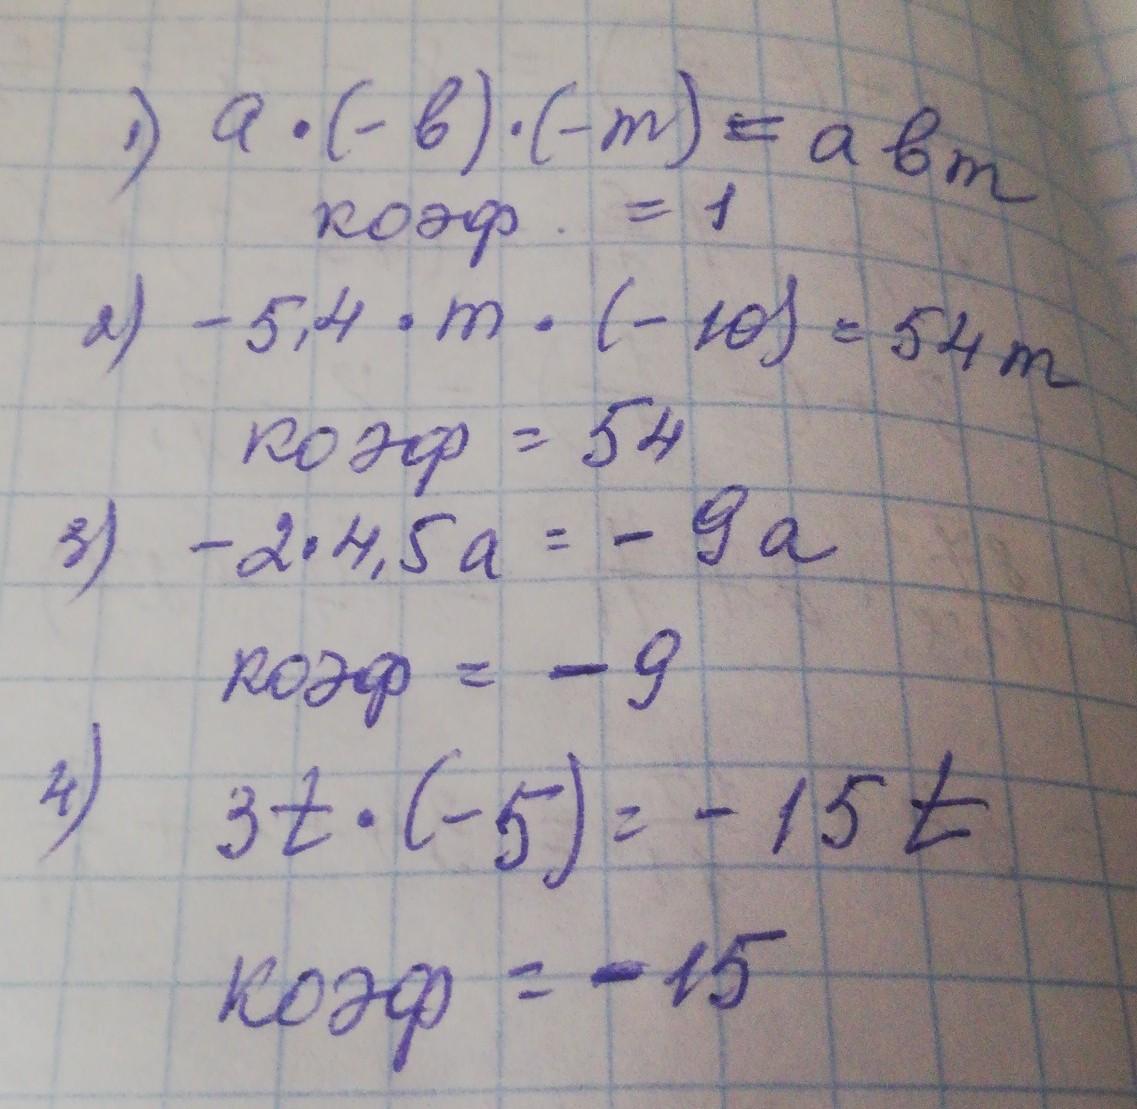 1) a · (- в) · (- m) = a в m
коэф. = 1
2) - 5,4 · m · (- 10) = 54 m
коэф = 54
3) - 2 · 4,5 a = - 9 a
коэф = - 9
4) 3t · (- 5) = - 15 t
коэф = - 15